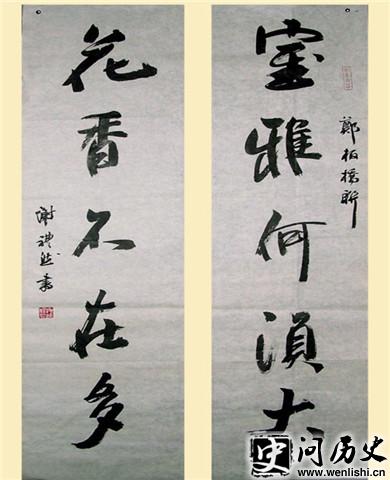 鄭板橋聯
室雅何湏大
花香不在多
謝禮然書
史问历史
www.wenlishi.cn